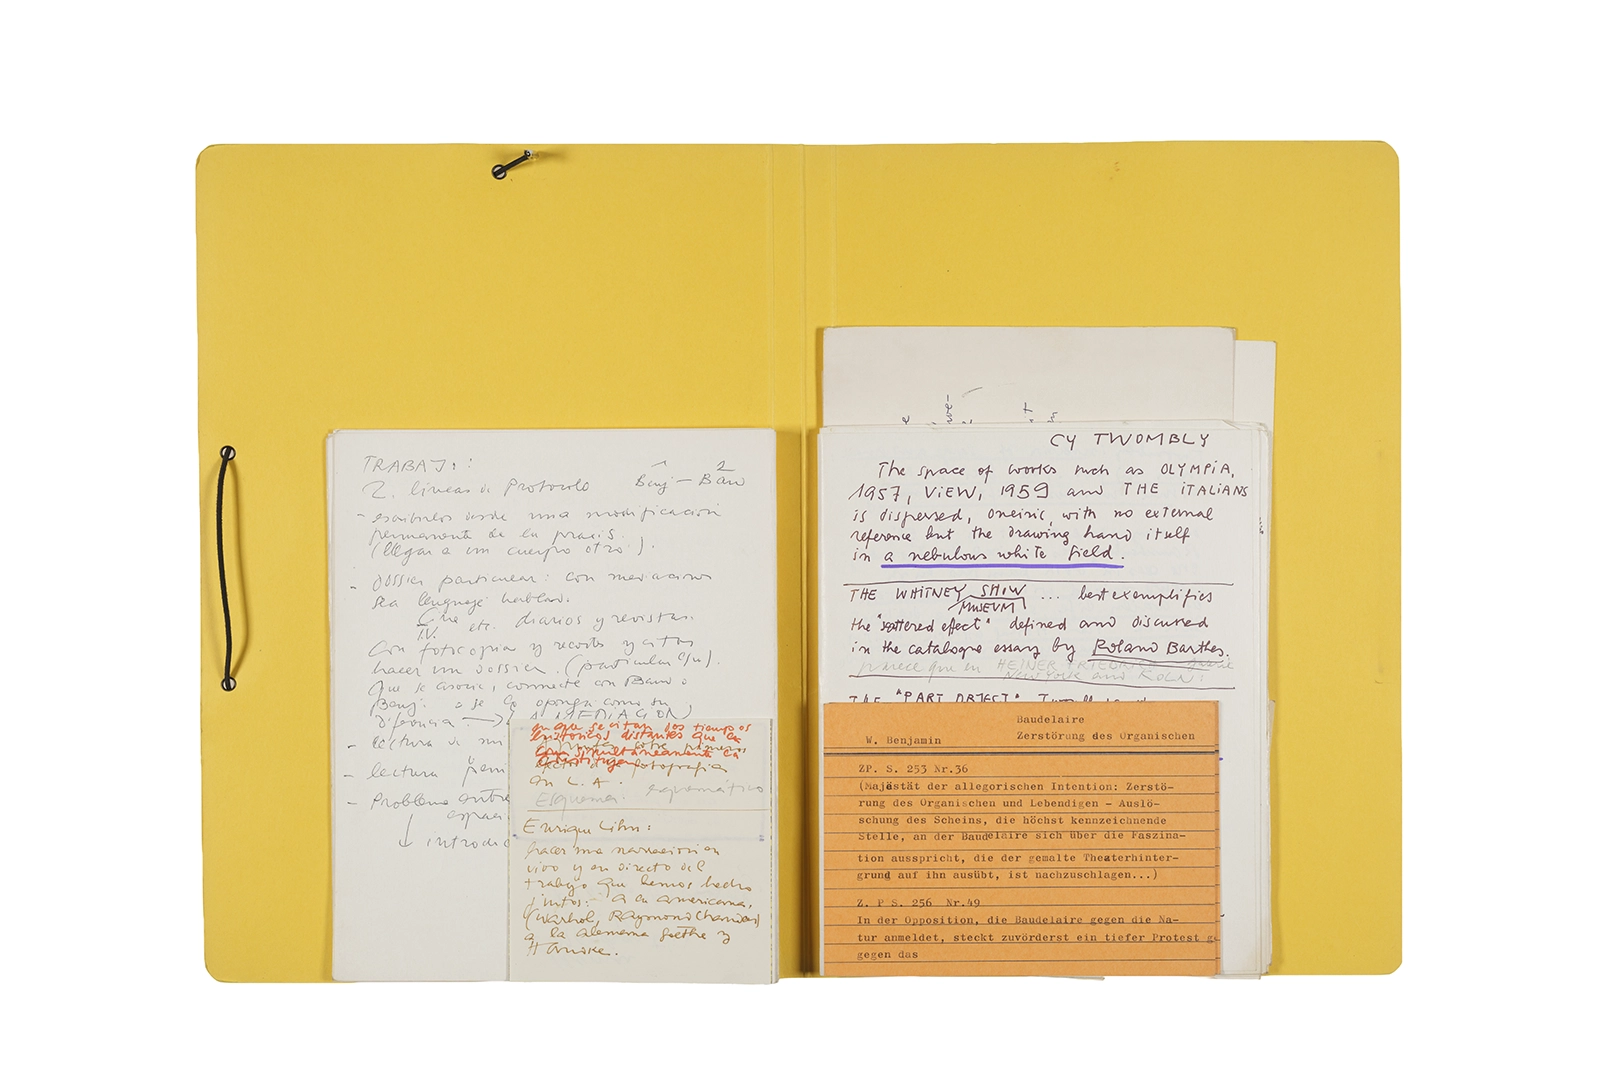 TRABAJ.:
2. lineas de Protocolo Benj — Bau
2
- escribirlos desde una modificación
permanente de la praxis.
(llegar a un cuerpo otro.).
- dossier particular: con
sea lenguaje hablado.
Cine
TV. etc. diarios y revistas.
Con fotocopias y recorte y citas
hacer un dossier. (particular c/u).
que se asocie, conecte con Baud o
Benj. o se le oponga como su
diferencia → MEDIACION)
- lectura de mi
- lectura
- Problema entre
espac
introdu
en que se citan dos tiempos
históricos distantes que la
simultáneamente la
fotografía
en L. A.
Esquema: esquemático
Enrique Lihn:
hacer una narración en
vivo y en directo del
trabajo que hemos hecho
juntos: a la americana.
(Warhol, Raymond Chandler)
a la alemana Goethe y
Handke.
CY TWOMBLY
The space of works such as OLYMPIA,
1957, VIEW, 1959 and THE ITALIANS
is dispersed, oneiric, with no external
reference but the drawing hand itself
in a nebulous white field.
THE WHITNEY SHOW ... best exemplifies
MUSEUM
the "scattered effect" defined and discussed
in the catalogue essay by Roland Barthes.
parece que en HEINER FRIEDRICH
NEW YORK and KOLN:
THE "PART OBJECT"
Baudelaire
W. Benjamin Zerstörung des Organischen
ZP. S. 253 Nr.36
(Majëstät der allegorischen Intention: Zerstö-
rung des Organischen und Lebendigen - Auslö-
schung des Scheins, die höchst kennzeichnende
Stelle, an der Baudelaire sich über die Faszina-
tion ausspricht, die der gemalte Theaterhinter-
grund auf ihn ausübt, ist nachzuschlagen...)
Z. P S. 256 Nr.49
In der Opposition, die Baudelaire gegen die Na-
tur anmeldet, steckt zuvörderst ein tiefer Protest ge
gegen das